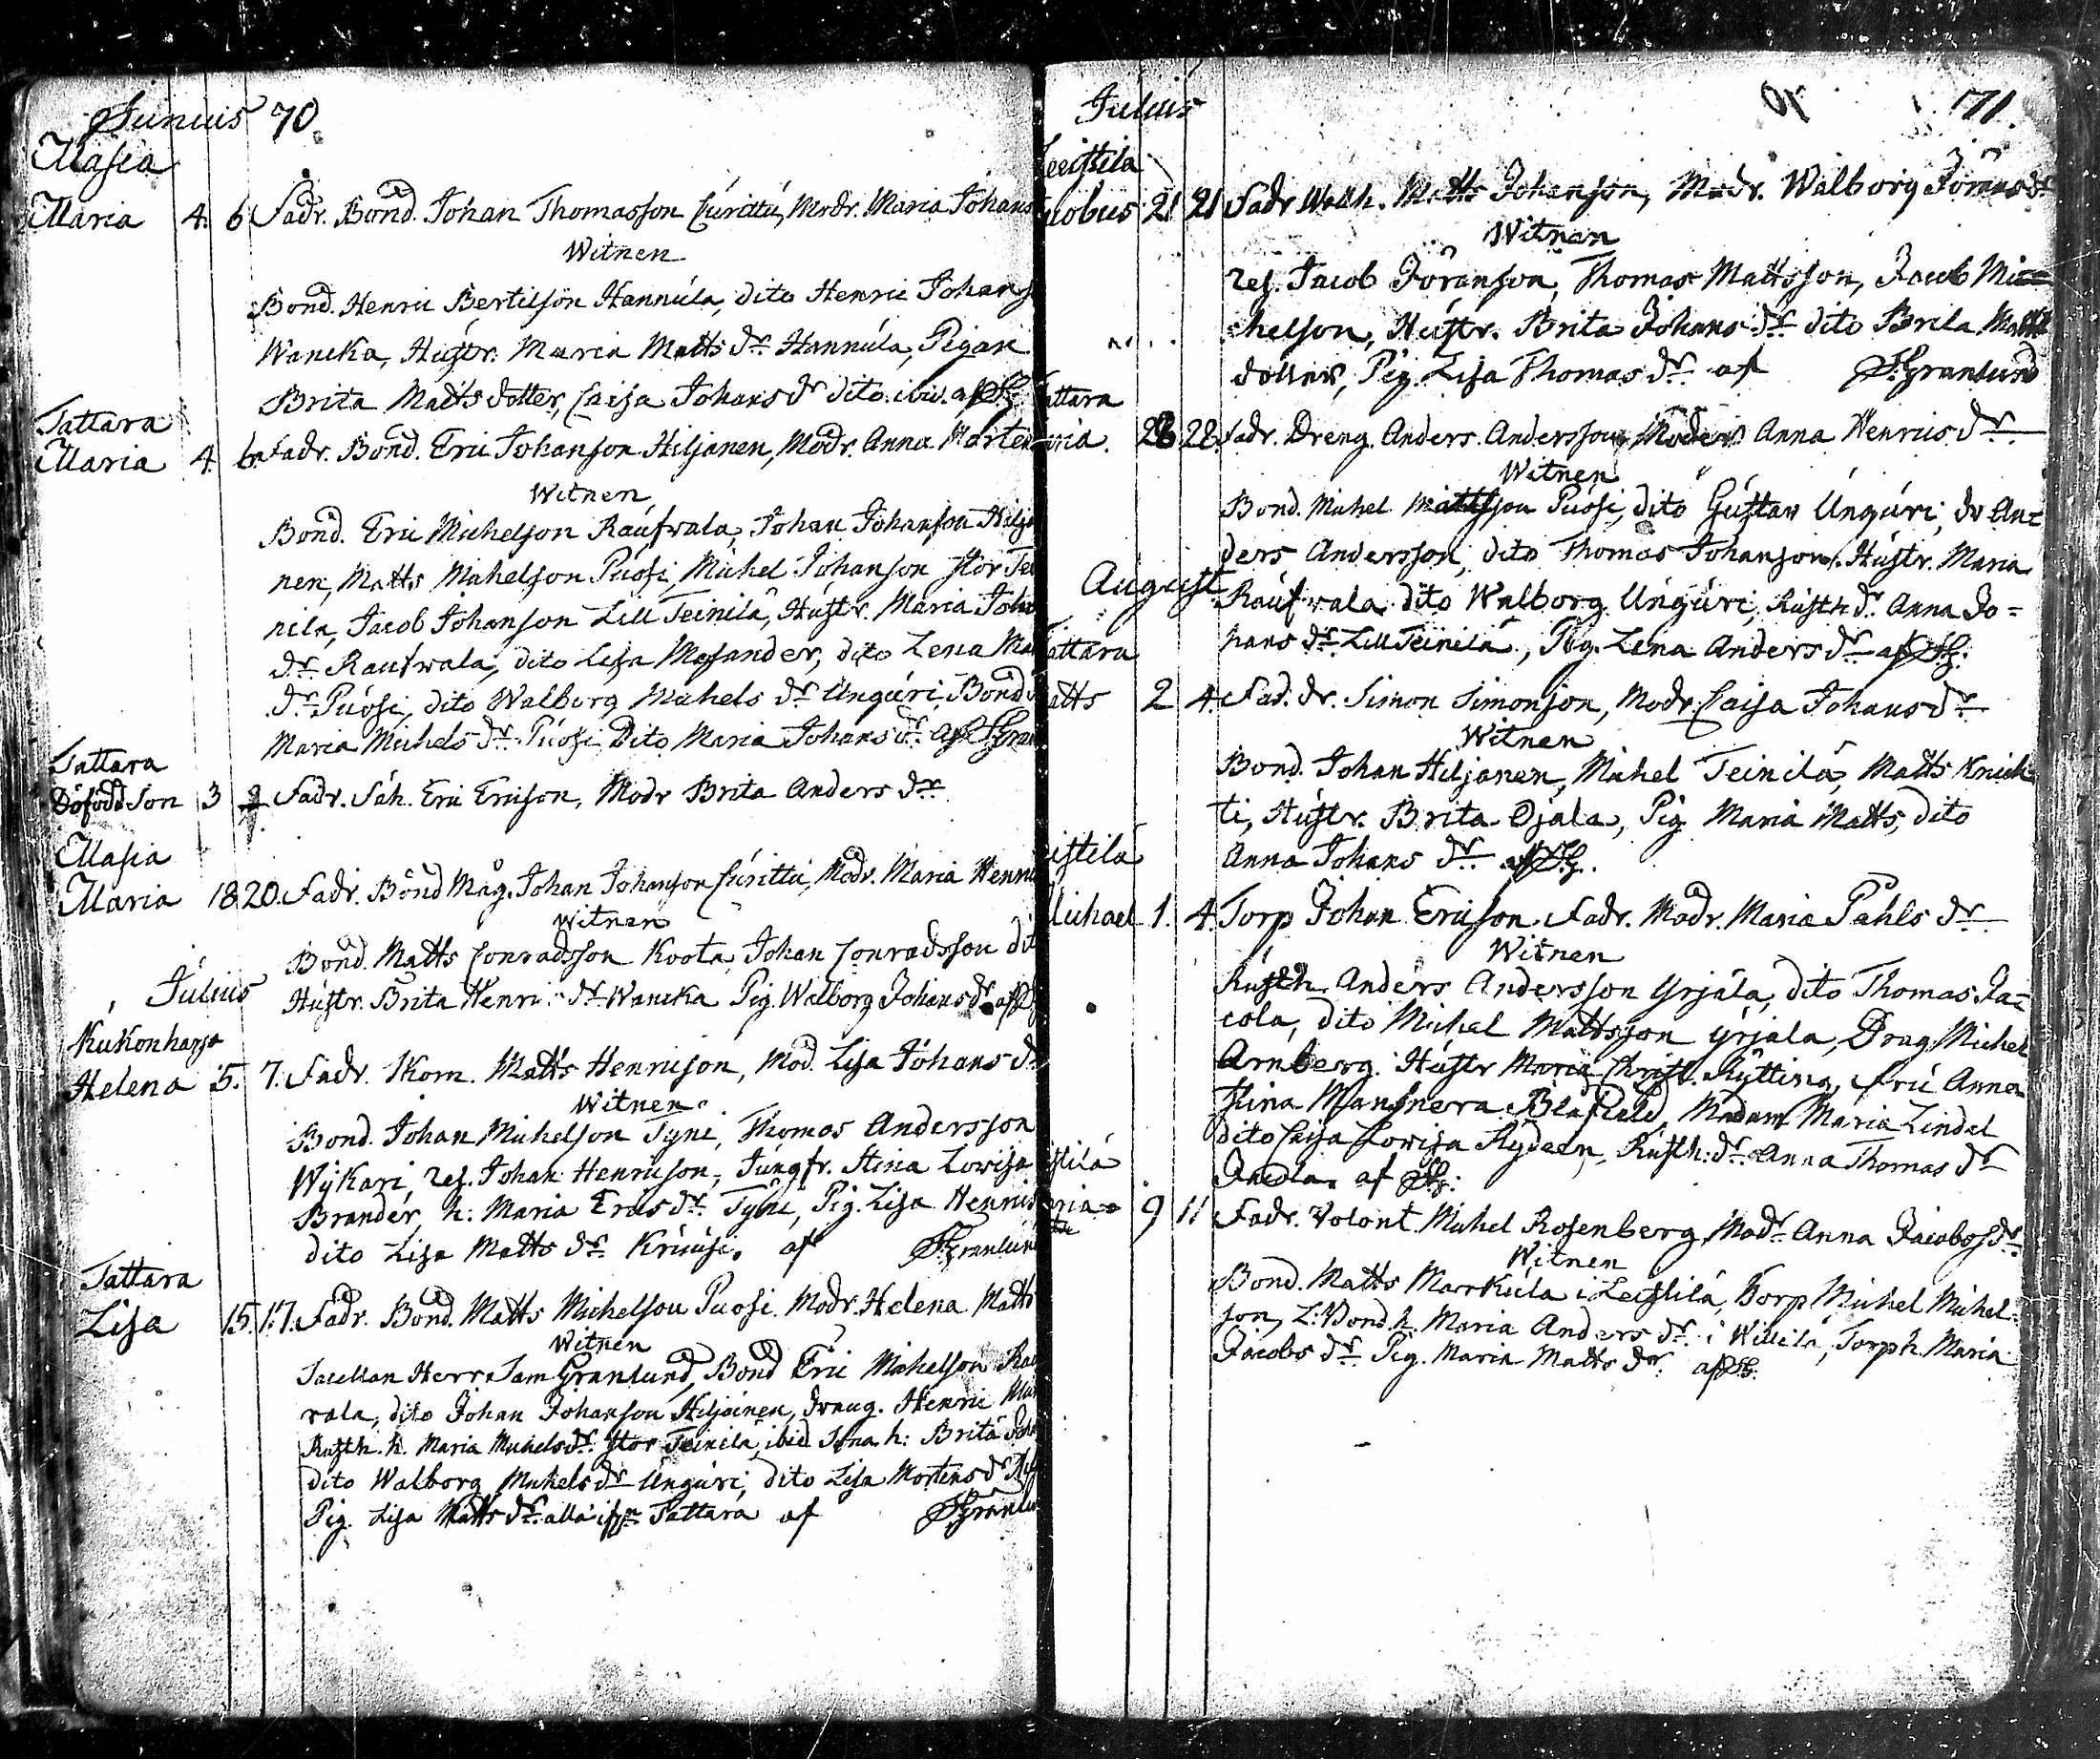 Junius 70.
Masia
Maria 4. 6 Fadr. Bond. Johan Thomasson Curittu, Modr. Maria Johans
Witnen
Bond. Henric Bertilson Hannula, dito Henric Johans
Wancka, Hustr. Maria Matts dr. Hannula, Pigan
Brita Matts dotter, Caisa Johans dr dito ibid. af SG
Tattara
Maria 4. 6. Fadr. Bond. Eric Johanson Hiljanen, Modr. Anna Mårten
Witnen
Bond. Eric Michelson Raufwala, Johan Johanson Hilja
nen, Matts Michelson Puosi, Michel Johanson Stor Tei
nila, Jacob Johanson Lill Teinilä, Hustr. Maria Joha
dr. Raufwala, dito Lisa Mesander, dito Lena Ma
dr. Puosi, dito Walborg Michels dr. Unguri, Bond
Maria Michels dr. Puosi Dito Maria Johans dr. af SGran
Tattara
Döfödd Son 3 Fadr. Såh. Eric Ericson, Modr Brita Anders dr.
Masia
Maria 18. 20. Fadr. Bond Måg. Johan Johanson Curittu, Modr. Maria Henri
Witnen
Bond. Matts Conradsson Koota, Johan Conradsson dit
Hustr. Brita Henri dr. Wancka Pig. Walborg Johans dr. af
Julius
Kukonharja
Helena 5. 7. Fadr. Skom. Matts Henricson, Mod. Lisa Johans d
Witnen
Bond. Johan Michelson Tyni, Thomas Andersson
Wijkari, res. Johan Henricson, Jungfr. Stina Lowisa
Brander, h: Maria Erics dr. Tyni, Pig. Lisa Henris
dito Lisa Matts dr. Kriusi. af SGranlun
Tattara
Lisa 15. 17. Fadr. Bond. Matts Michelson Puosi. Modr. Helena Matts
Witnen
Sacellan Herr Sam Granlund, Bond Eric Michelson Rau
wala, dito Johan Johanson Hiljainen, Dräng. Henric
Rusth. h. Maria Michels dr. Stor Teinilä, ibid h: Brita Joha
dito Walborg Michels dr Unguri, dito Lisa Mortens dr
Pig. Lisa Matts dr. alla ifrn Tattara af SGranlu
Julius 71.
Leistila
Jacobus 21 21 Fadr Matts Johanson, Modr. Walborg Jörans dr
Witnen
res. Jacob Jöranson, Thomas Mattsson, Jacob Mi=
chelson, Hustr. Brita Johans dr. dito Brita Matts
dotter, Pig. Lisa Thomas dr. af S. Granlund
Tattara
Maria. 28 28. Fadr. Dreng. Anders Andersson, Moder Anna Henrics dr.
Witnen
Bond. Michel Mattsson Puosi, dito Gustav Unguri, dr An=
ders Andersson, dito Thomas Johanson. Hustr. Maria
Raufwala dito Walborg Unguri, Rusth dr. Anna Jo=
hans dr. Lill Teinilä, Pig. Lena Anders dr. af SG.
August
Tattara
Matts 2 4. Fad. dr. Simon Simonson, Modr. Caisa Johans dr.
Witnen
Bond. Johan Hiljanen, Michel Teinilä, Matts Knich
ti, Hustr. Brita Ojala, Pig Maria Matts, dito
Anna Johans dr. af SG.
Leistilä
Michael 1. 4. Torp Johan Ericson. Fadr. Modr. Maria Påhls dr.
Witnen
Rusth. Anders Andersson Yrjälä, dito Thomas Ja=
cola, dito Michel Mattsson Yrjälä, Drag. Michel
Arnberg. Hustr Maria Christ. Kytting, Fru Anna
Stina Blåfield, Madam Maria Lindel
dito Caisa Lowisa Rydeen, Rusth: dr. Anna Thomas dr
Jacola. af SG:
Leistilä
Maria 9 11 Fadr. Volont. Michel Rosenberg, Modr Anna Jacobs dr.
Witnen
Bond. Matts Markula i Leistilä, Torp Michel Michel=
son, L: Bond. h. Maria Anders dr. i Willilä, Torp h. Maria
Jacobs dr. Pig. Maria Matts dr. af SG.